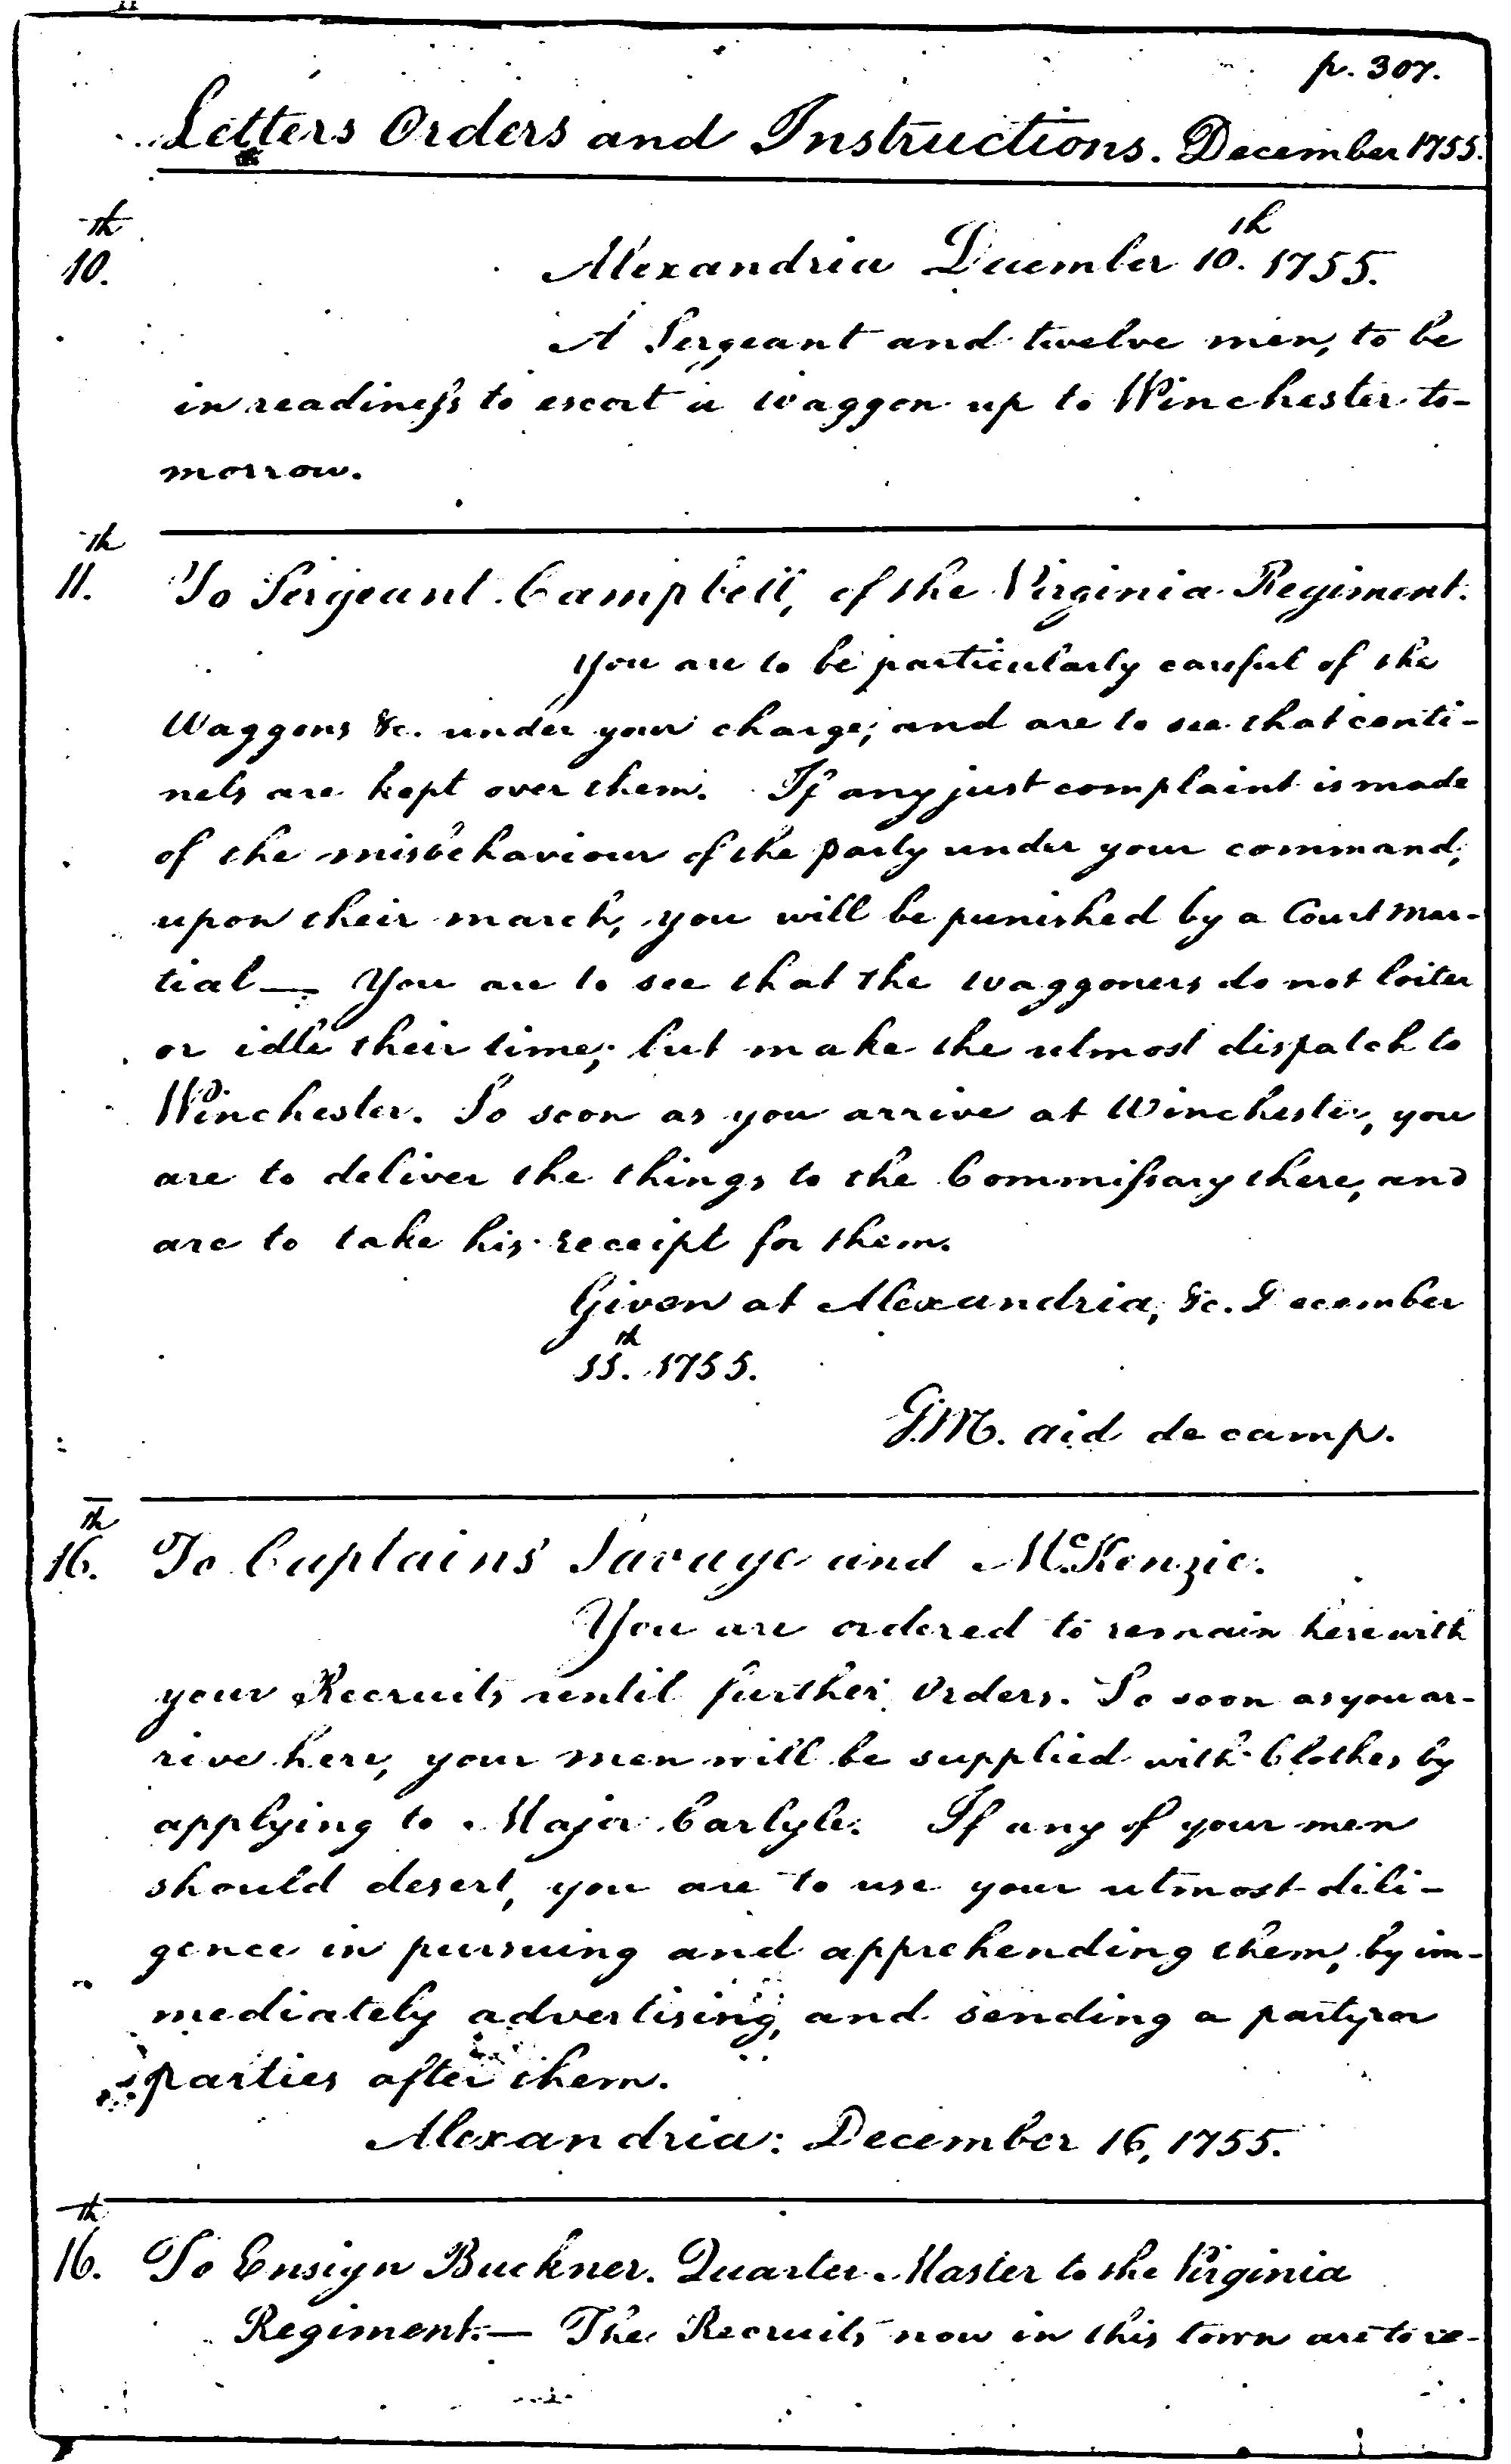 p. 307.
Letters Orders and Instructions. December 1755.
10.th Alexandria December 10.th 1755.
A Sergeant and twelve men, to be
in readiness to escort a waggon up to Winchester to-
morrow.
11.th To Sergeant Campbell, of the Virginia Regiment.
You are to be particularly careful of the
Waggons &c. under your charge; and are to see that centi-
nels are kept over them. If any just complaint is made
of the misbehaviour of the party under your command,
upon their march, you will be punished by a Court Mar-
tial— You are to see that the waggoners do not loiter
or idle their time; but make the utmost dispatch to
Winchester. So soon as you arrive at Winchester, you
are to deliver the things to the Commissary there, and
are to take his receipt for them.
Given at Alexandria, &c. December
11.th 1755.
G.M. aid de camp.
16.th To Captains Savage and McKenzie.
You are ordered to remain here with
your Recruits until further Orders. So soon as you ar-
rive here, your men will be supplied with Clothes by
applying to Major Carlyle. If any of your men
should desert, you are to use your utmost dili-
gence in pursuing and apprehending them, by im-
mediately advertising, and sending a party or
parties after them.
Alexandria: December 16, 1755.
16.th To Ensign Buckner. Quarter-Master to the Virginia
Regiment.— The Recruits now in this town are to re-